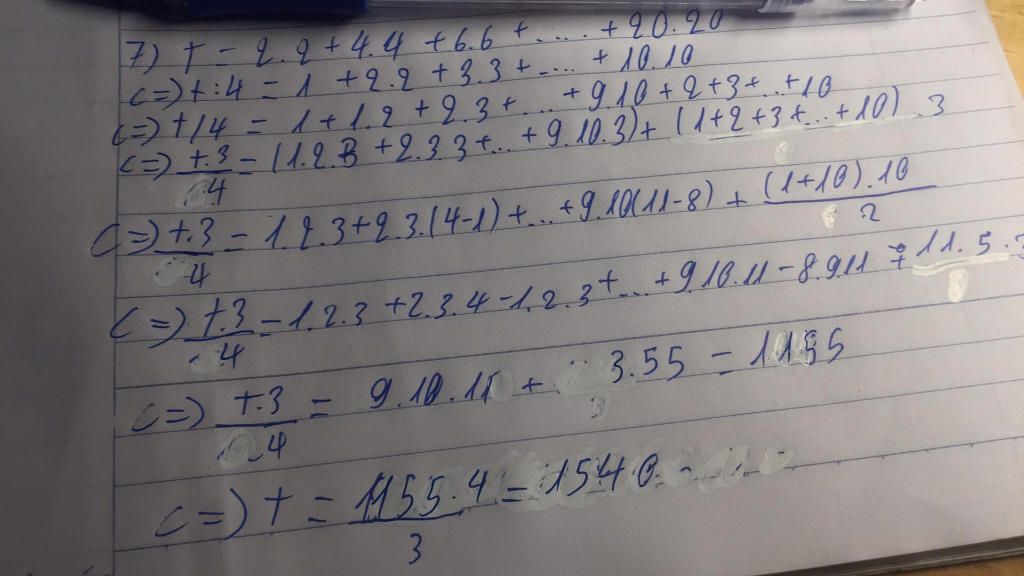 7) t = 2.2 + 4.4 + 6.6 + .... + 20.20
<=> t:4 = 1 + 2.2 + 3.3 + ... + 10.10
<=> t/4 = 1 + 1.2 + 2.3 + ... + 9.10 + 2 + 3 + ... + 10
<=> t.3/4 = (1.2.3 + 2.3.3 + ... + 9.10.3) + (1+2+3+...+10).3
<=> t.3/4 = 1.2.3 + 2.3.(4-1) + ... + 9.10(11-8) + (1+10).10/2
<=> t.3/4 = 1.2.3 + 2.3.4 - 1.2.3 + ... + 9.10.11 - 8.9.11 + 11.5.3
<=> t.3/4 = 9.10.11 + 3.55 = 1155
<=> t = 1155.4/3 = 1540